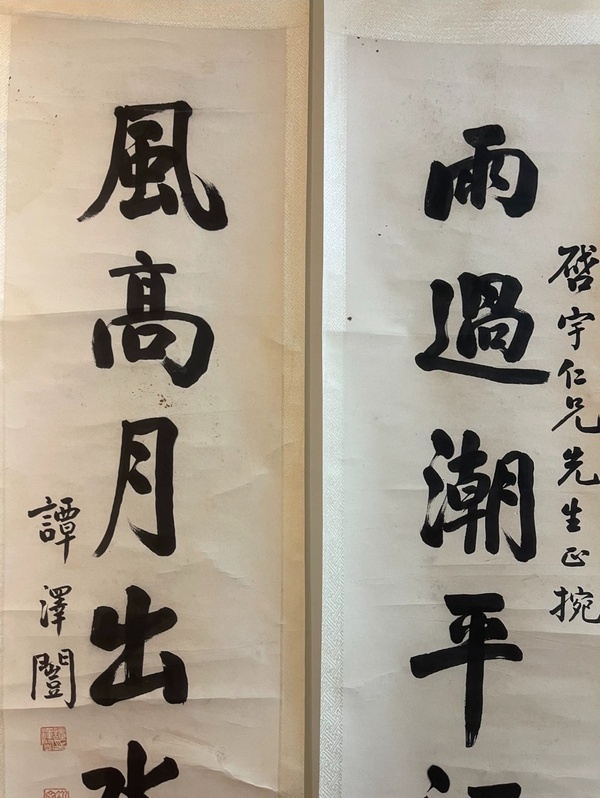 啓宇仁兄先生正捥
雨過潮平
風高月出
譚澤闓